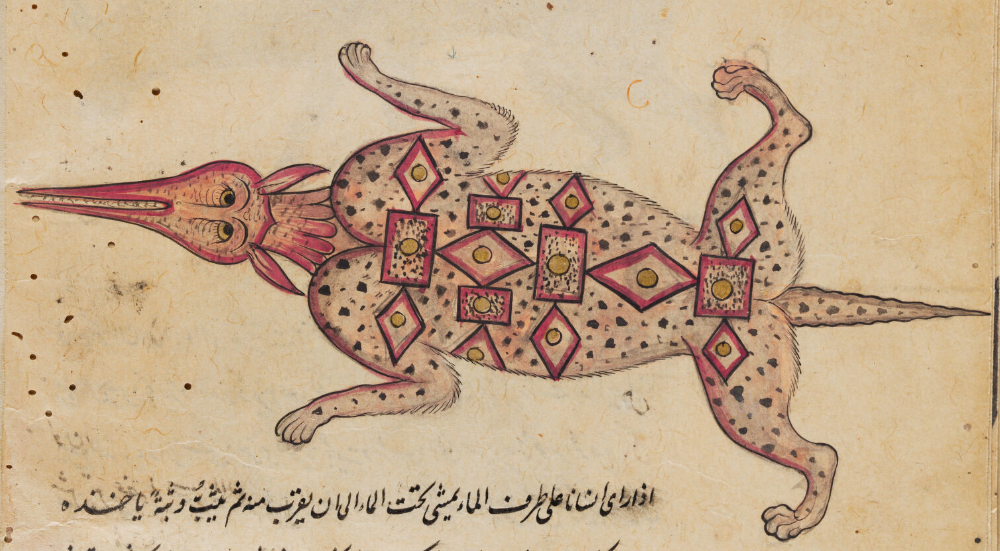 اذا رای انسانا علی طرف الماء یمشی تحت الماء الی ان یقرب منه ثم یثب وثبة یاخذه